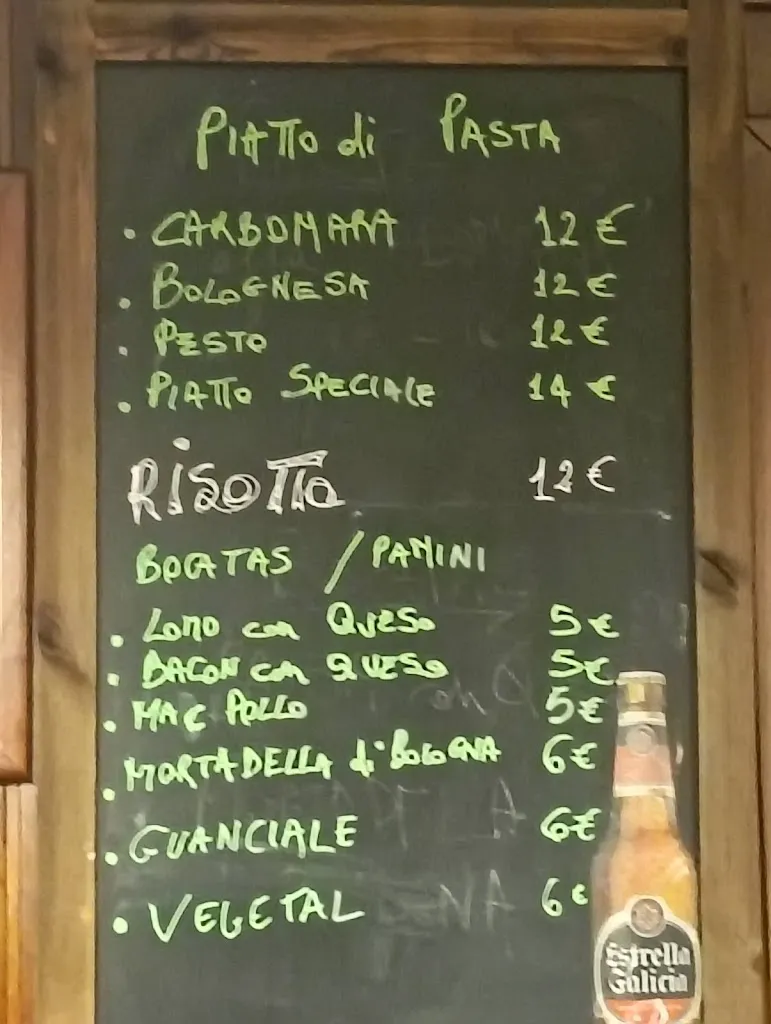 PIATTO di PASTA
• CARBONARA 12 €
• BOLOGNESA 12 €
• PESTO 12 €
• PIATTO SPECIALE 14 €
RISOTTO 12 €
BOCATAS / PANINI
• LOMO con QUESO 5 €
• BACON con QUESO 5€
• MAC POLLO 5€
• MORTADELLA di BOLOGNA 6€
• GUANCIALE 6€
• VEGETAL 6€
Estrella
Galicia